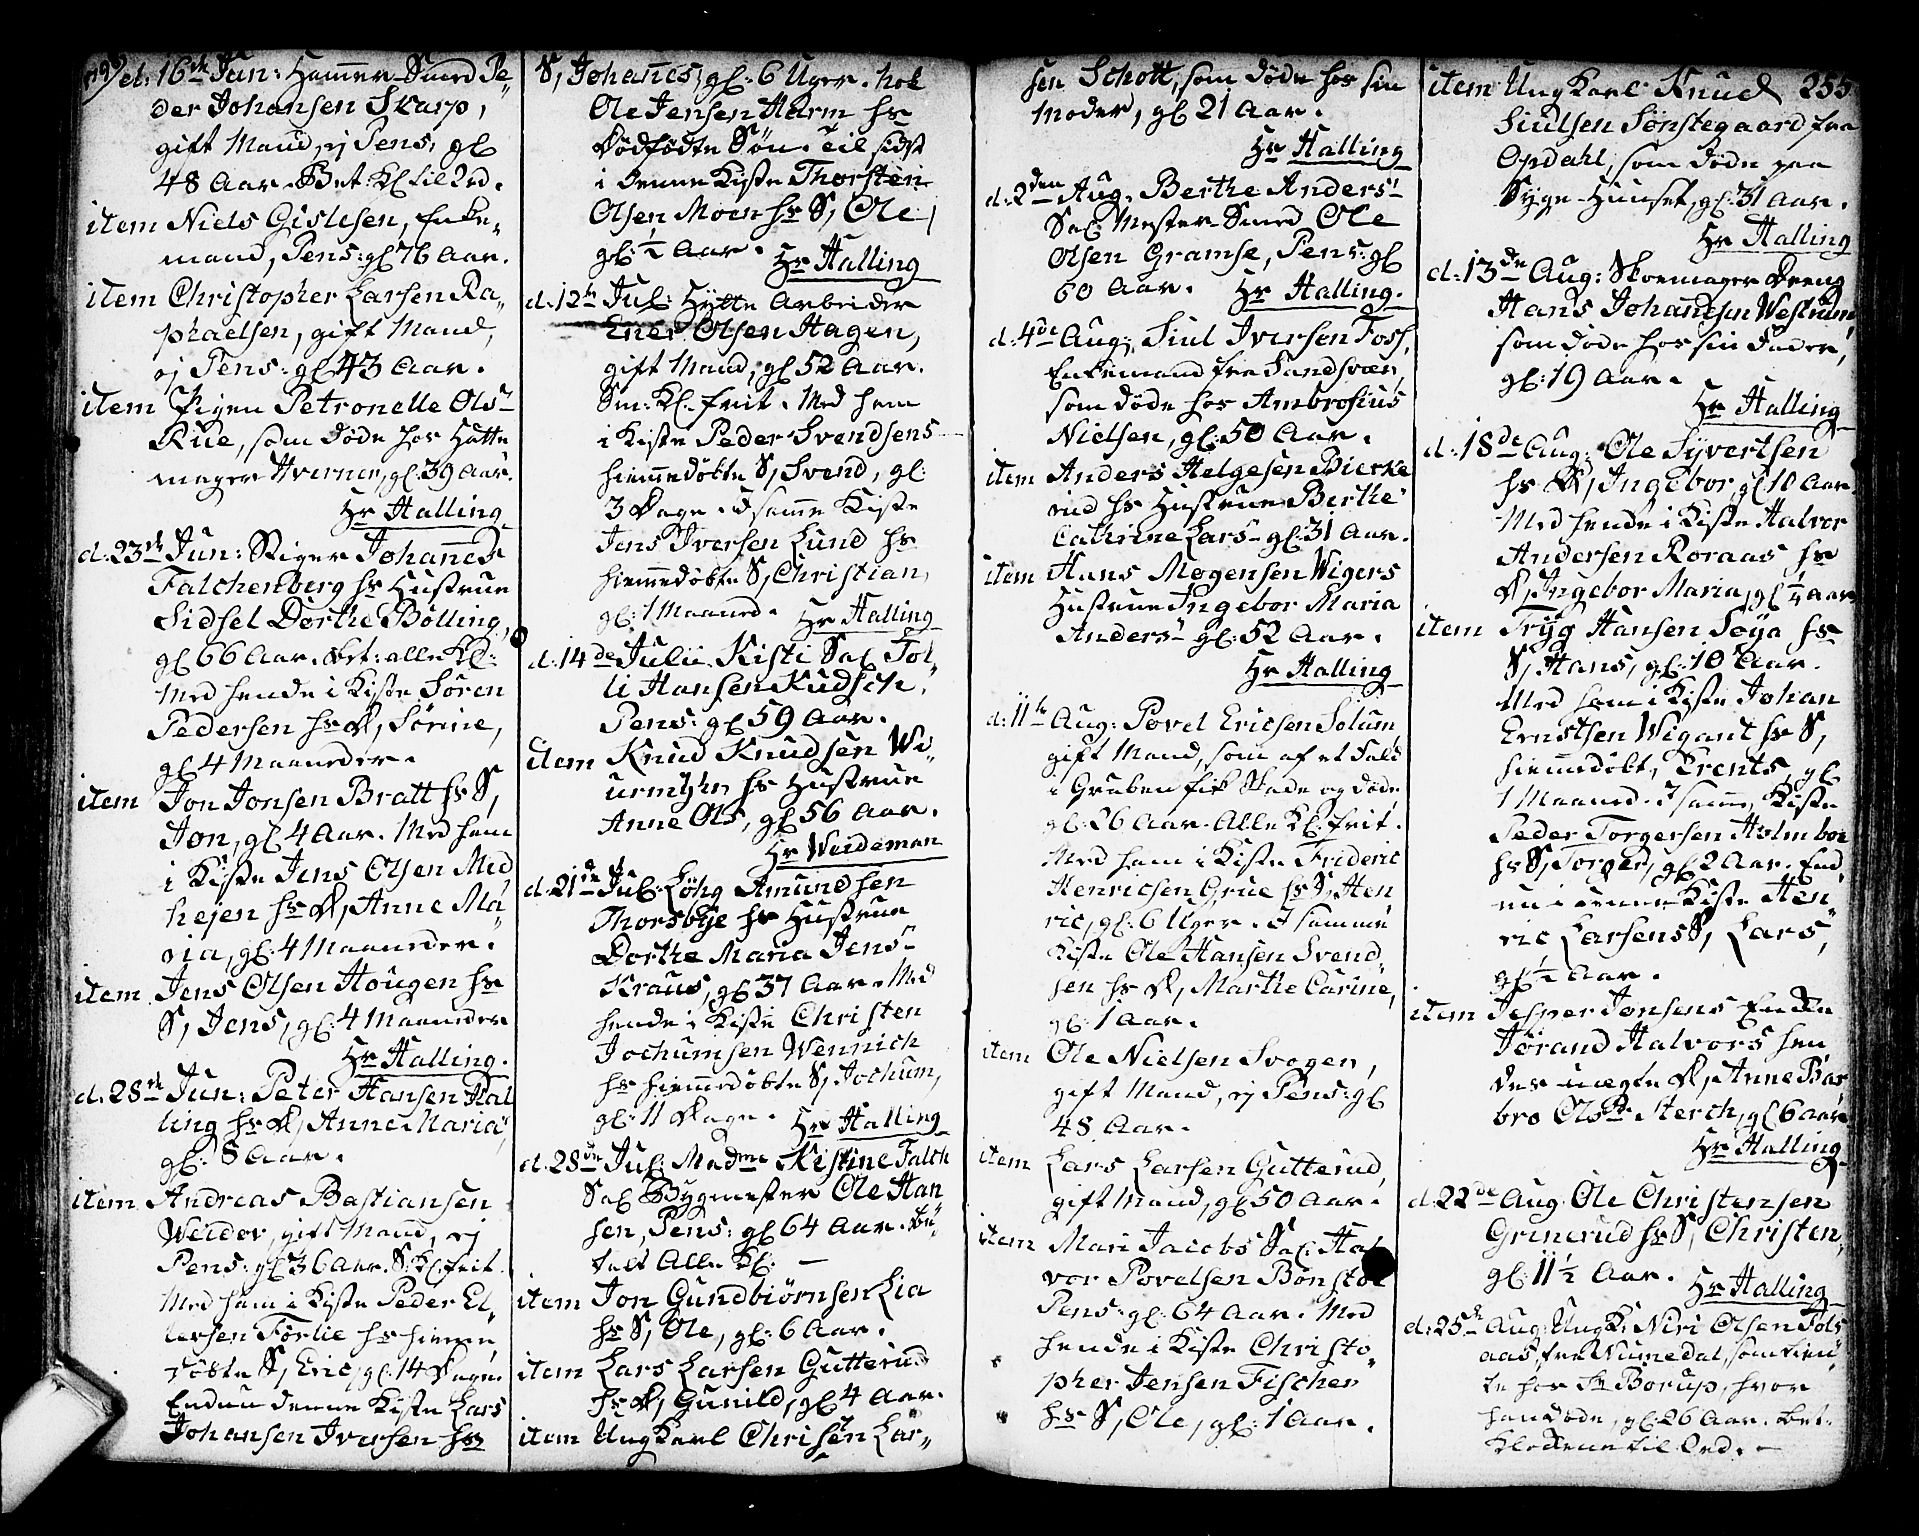 d. 16de Jun: Hammer-Smed Pe-
der Johansen Skarp,
gift Mand, ej Pens, gl
48 Aar. Bet: Kl til 2rd.
item Niels Gislesen, Enke-
mand, Pens: gl 76 Aar.
item Christopher Larsen Ra-
phaelsen, gift Mand,
ej Pens: gl 43 Aar.
item Pigen Petronelle Ols-
Rue, som døde hos Hatte
mager Hverner, gl: 39 Aar.
Hr Halling
d. 23de Jun: Stiger Johannes
Falchenberg hs Hustrue
Sidsel Dorthe Bølling,
gl 66 Aar. bet: alle Kl:
Med hende i Kiste Søren
Pedersen hs D, Sørine,
gl 4 Maaneder.
item Jon Jonsen Bratt hs S,
Jon, gl 4 Aar. Med ham
i Kiste Jens Olsen Med
hejen hs D, Anne Ma-
ria, gl: 4 Maaneder.
item Jens Olsen Hougen hs
S, Jens, gl: 4 Maaneder
Hr Halling.
d. 28de Jun: Peter Hansen Hal
ling hs D, Anne Maria,
gl: 8 Aar.
item Andreas Bastiansen
Weider, gift Mand, ej
Pens: gl 36 Aar. S: Kl. frit.
Med ham i Kiste Peder El-
lersen Førlie hs hieme
døbte S, Eric, gl. 14 Dage.
Endnu i denne Kiste Lars
Johansen Iversen hs
S, Johanes, gl: 6 Uger. Nok
Ole Jensen Harm hs
Dødfødte Søn. Til sidst
i denne Kiste Thorsten
Olsen Moen hs S, Ole,
gl: ½ Aar. Hr Halling
d. 12te Jul: Hytte Arbeider
Ener Olsen Hagen,
gift Mand, gl 52 Aar.
Sm: Kl. frit. Med ham
i Kiste Peder Svendsens
hiemmedøbte S, Svend, gl:
3 Dage. I samme Kiste
Jens Iversen Lund hs
hiemmedøbte S, Christian,
gl: 1 Maaned. Hr Halling
d. 14de Julii Kisti Sal Tol-
li Hansen Kudsch,
Pens: gl 59 Aar.
item Knud Knudsen Wi-
urmyhr hs Hustrue
Anne Ols, gl 56 Aar.
Hr Weideman
d. 21de Jul: Løhg Amundsen
Thorsbye hs Hustrue
Dorthe Maria Jens-
Kraus, gl 37 Aar. Med
hende i Kiste Christen
Jochumsen Wennich
hs hiemmedøbte S, Jochum,
gl: 11 Dage. Hr Halling
d. 28de Jul: Madme Kistine Falch
Sal Bygmester Ole Han
sen, Pens: gl 64 Aar. be-
talt Alle Kl:
item Jon Gundbiørnsen Lia
hs S, Ole, gl: 6 Aar.
item Lars Larsen Gutterud
hs D, Gunild, gl 4 Aar.
item Ung Karl Christen Lar-
sen Schott, som døde hos sin
Moder, gl 21 Aar.
Hr Halling
d. 2den Aug. Berthe Anders-
Sal: Mester-Smed Ole
Olsen Gramse, Pens: gl
60 Aar. Hr Halling.
d. 4de Aug: Siul Iversen Foss,
Enkemand fra Sandsvær,
som døde hos Ambrosius
Nielsen, gl: 50 Aar.
item Anders Helgesen Bierke
rud hs Hustrue Berthe
Cathrine Lars- gl: 31 Aar.
item Hans Mogensen Wigers
Hustrue Ingebor Maria
Anders- gl: 52 Aar.
Hr Halling
d. 11te Aug: Povel Ericsen Solum,
gift Mand, som af et Fald
i Gruben fik Skade og døde
gl: 26 Aar. Alle Kl. frit.
Med ham i Kiste Frideric
Henricsen Grue hs S, Hen
ric, gl: 6 Uger. I samme
Kiste Ole Hansen Svend-
sen hs D, Marthe Carine,
gl: 1 Aar.
item Ole Nielsen Svagen,
gift Mand, ej Pens: gl
48 Aar.
item Lars Larsen Gutterud,
gift Mand, gl 50 Aar.
item Mari Jacobs Sal: Hal
vor Povelsen Bonstøl
Pens: gl: 64 Aar. Med
hende i Kiste Christo-
pher Jensen Fischer
hs S, Ole, gl: 1 Aar.
item Ung Karl Knud 255
Siulsen Sønstegaard fra
Opdahl, som døde paa
Syge-Huuset, gl: 31 Aar.
Hr Halling
d. 13de Aug: Skoemager Dreng
Hans Johansen Westrum,
som døde hos sin Fader,
gl: 19 Aar.
Hr Halling
d. 18de Aug: Ole Syvertsen
hs D, Ingebor, gl 10 Aar.
Med hende i Kiste Halvor
Andersen Roraas hs
D, Ingebor Maria, gl ¼ Aar
item Tryg Hansen Søya hs
S, Hans, gl: 10 Aar.
Med ham i Kiste Johan
Ernstsen Wigant hs S,
hiemedøbt, Trents, gl
1 Maaned. I samme Kiste
Peder Torgersen Holmboe
hs S, Torger, gl 2 Aar. End
nu i denne Kiste Hen-
ric Larsens S, Lars,
gl ½ Aar.
item Jesper Jonsens Enke
Jørand Halvors hen
des uægte D, Anne Bar
bro Olsdr Sterch, gl 6 Aar
Hr Halling
d. 22de Aug Ole Christensen
Grinerud hs S, Christen,
gl: 11½ Aar. Hr Halling
d. 25de Aug: Ung K: Niri Olsen Tols
aas, fra Numedal, som tien
te hos Hr Borup, hvor
han døde, gl: 26 Aar. bet:
Klokkene til 2rd.